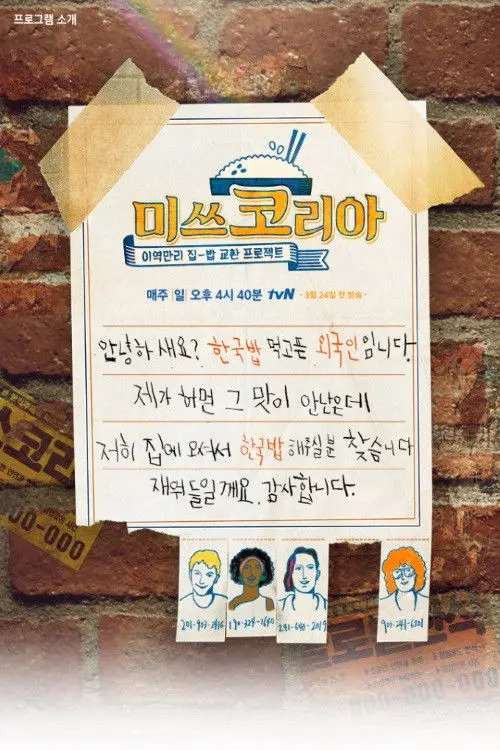 프로그램 소개
미쓰코리아
이역만리 집-밥 교환 프로젝트
매주 일 오후 4시 40분 tvN - 3월 24일 첫 방송 -
안녕하새요? 한국밥 먹고픈 외국인입니다.
제가 하면 그 맛이 안난은데
저희 집에 오셔서 한국밥 해주실분 찾습니다
재워드일게요. 감사합니다.
쓰코리아
00-000
201-903-2416
190-324-2640
291-640-2019
900-241-6201
00-000-000